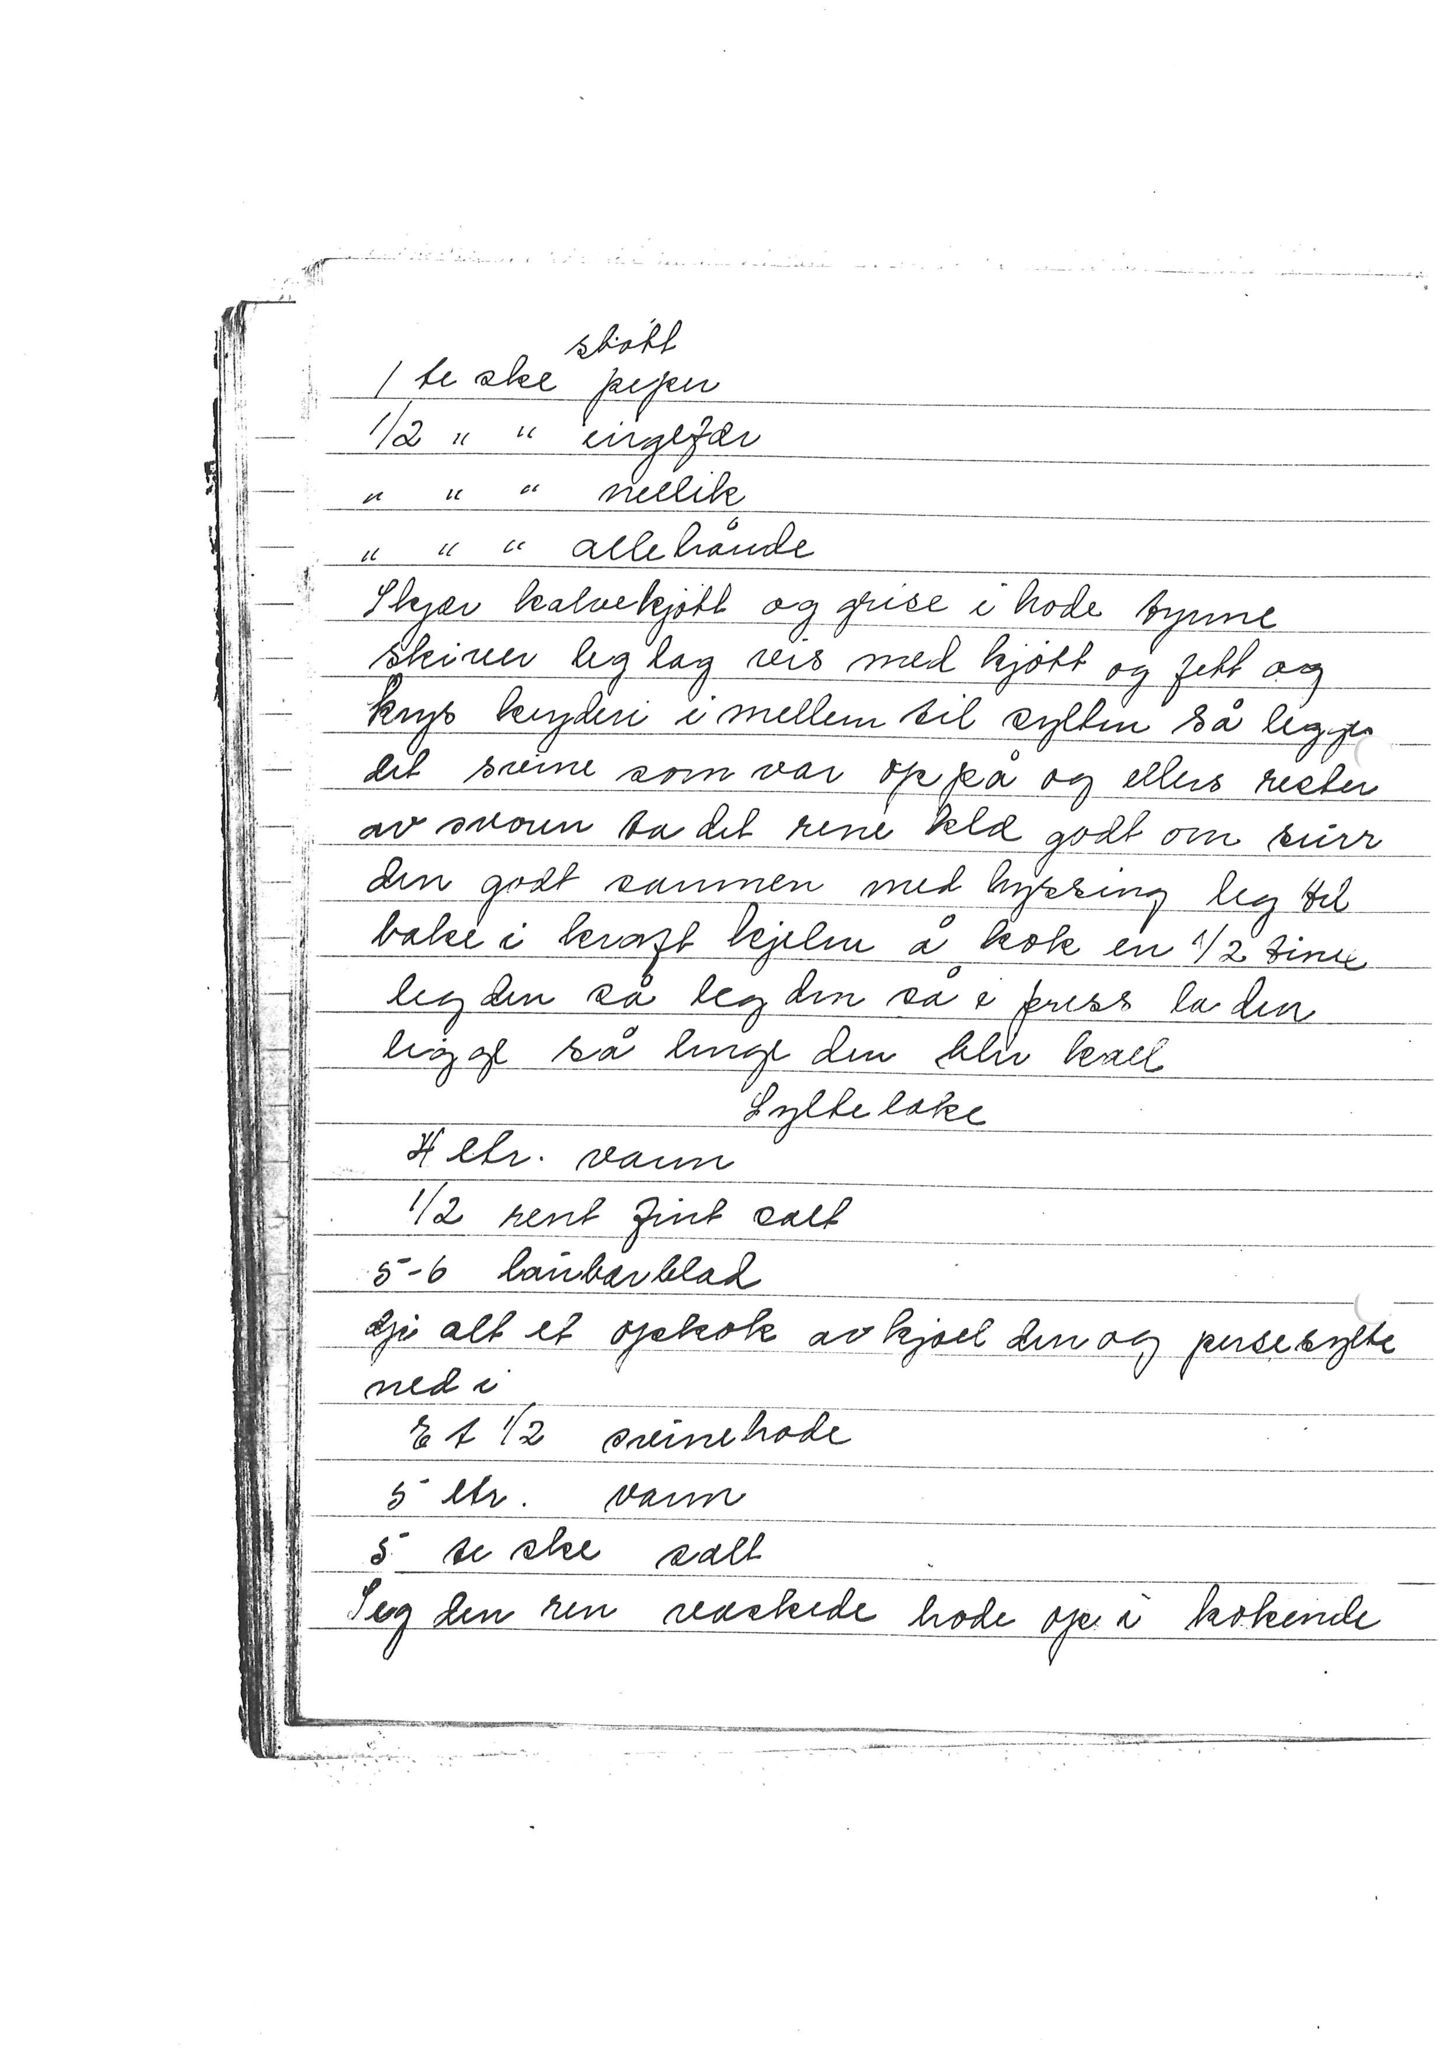 støtt
1 te ske peper
1/2 " " ingefær
" " " nellik
" " " allehånde
Skjær kalvekjøtt og grise i hode tynne
skiver leg lag vis med kjøtt og fett og
krys krydderi i mellem til sylten så legges
det sveine som var op på og ellers rester
av svoren ta det rene klæ godt om surr
den godt sammen med hyssing leg til
bake i kraft kjelen å kok en 1/2 time
leg den så leg den så i press la den
ligge så lenge den blir kall
Sylte lake
4 ltr. vann
1/2 rent fint salt
5-6 laurbærblad
Gji alt et opkok avkjøel den og persesylte
ned i
Et 1/2 sveinehode
5 ltr. vann
5 te ske salt
Leg den ren vaskede hode op i kokende